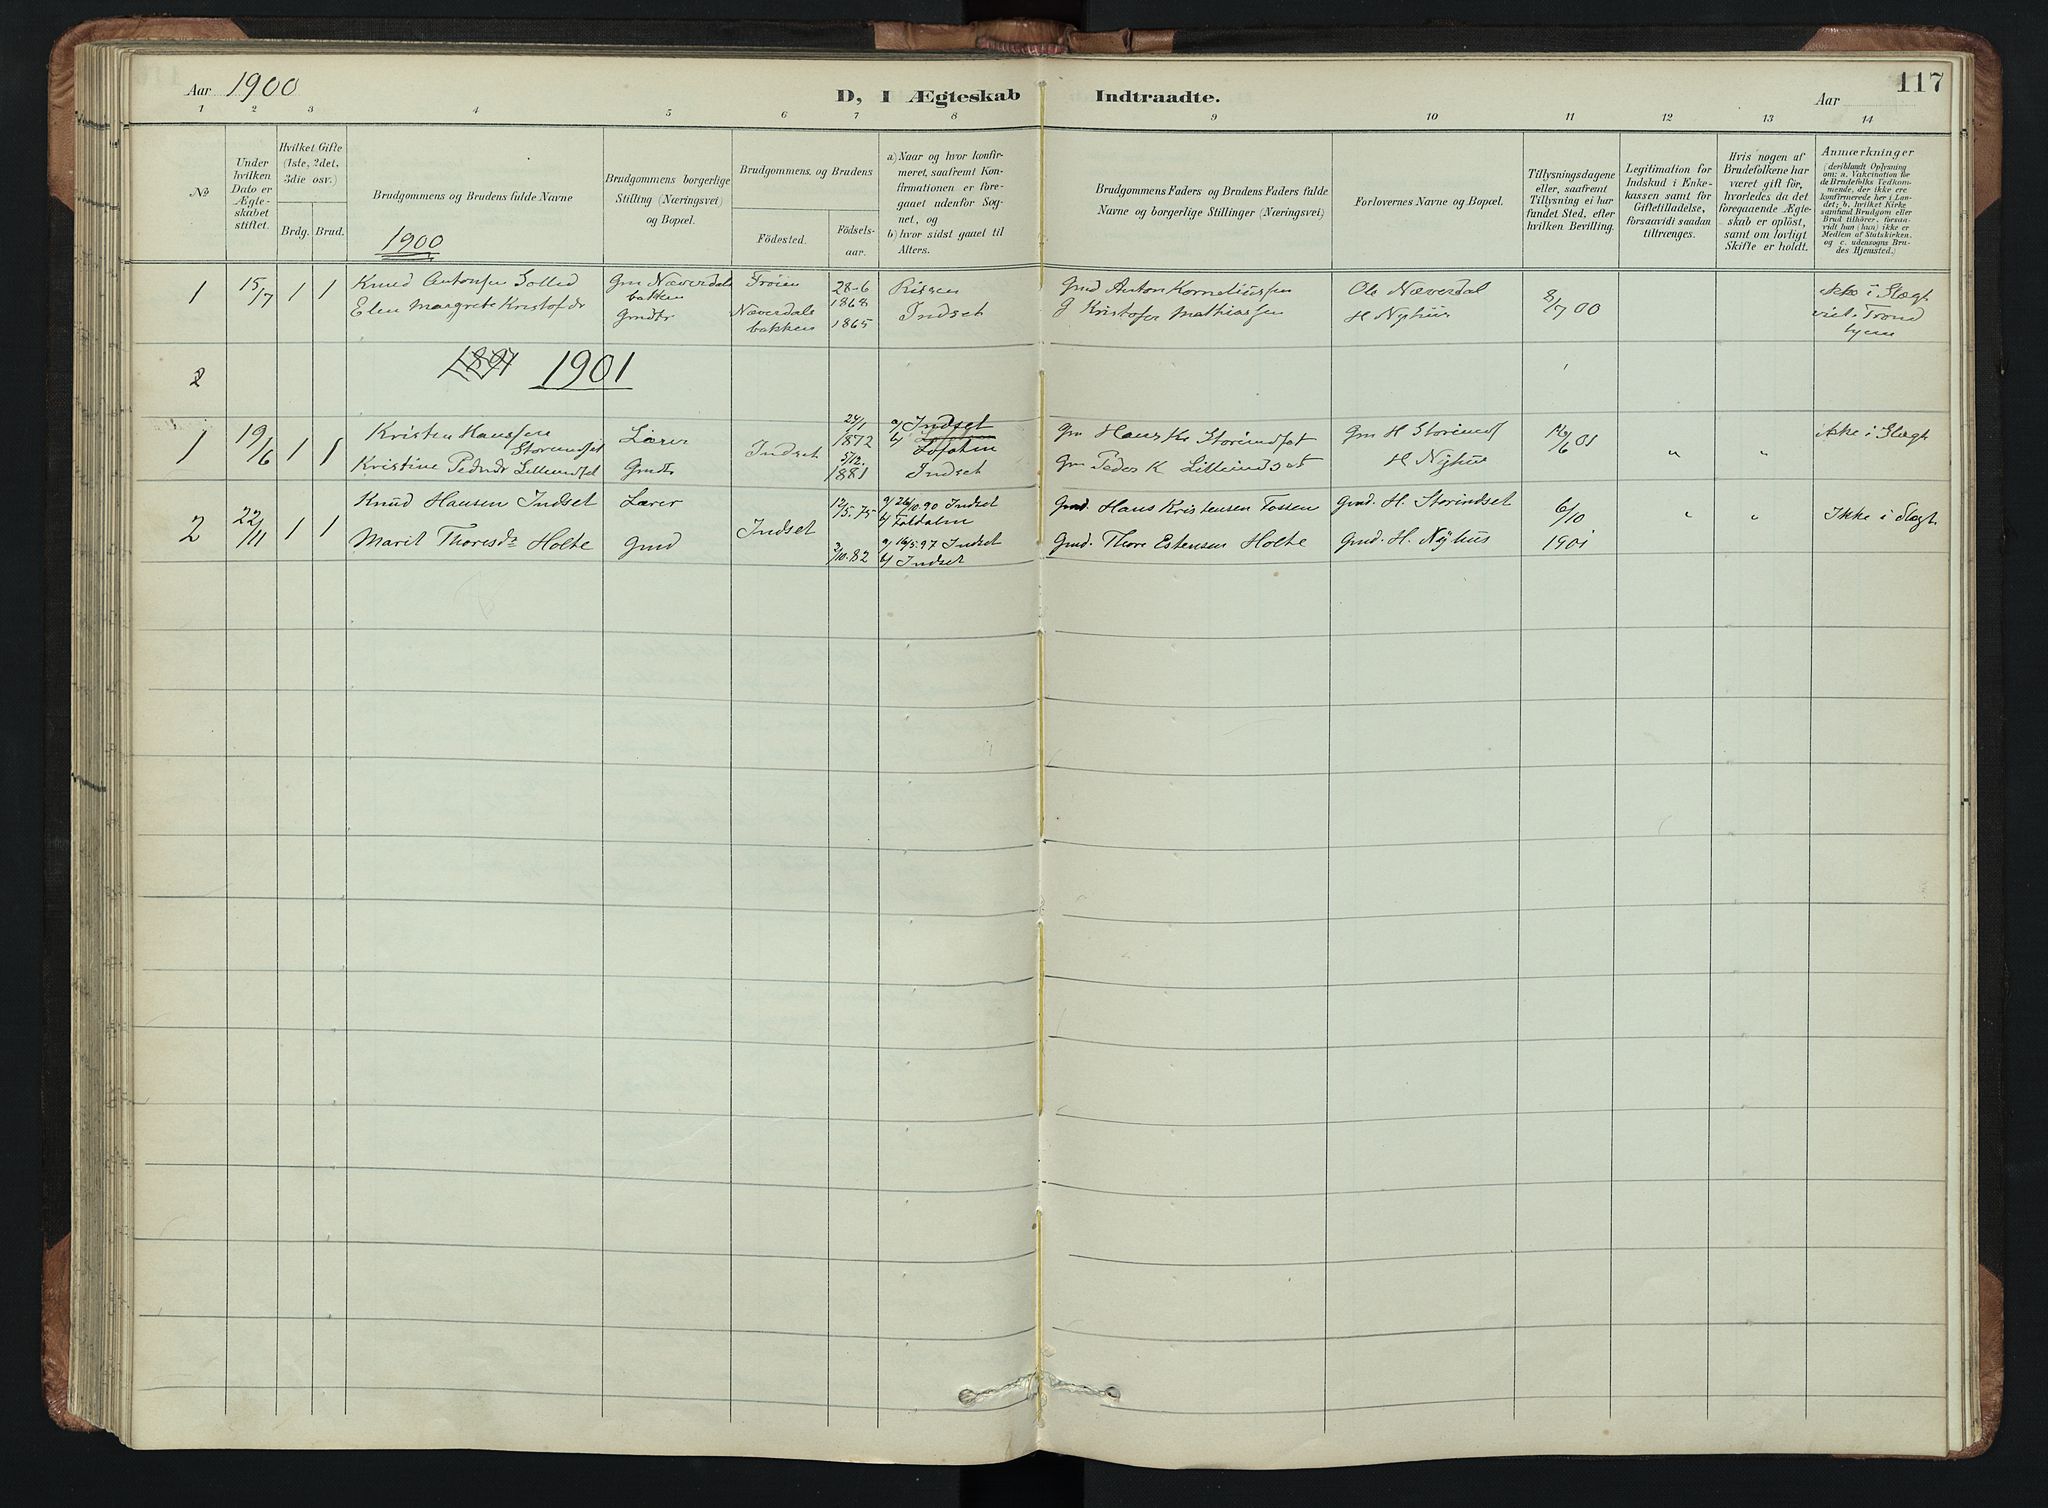 Aar 1900
D, I Ægteskab Indtraadte.
Aar
117
1 2 3 4 5 6 7 8 9 10 11 12 13 14
No
Under hvilken Dato er Ægte-skabet stiftet.
Hvilket Gifte (1ste, 2det, 3die osv.)
Brdg. Brud.
Brudgommens og Brudens fulde Navne
1900
Brudgommens borgerlige Stilling (Næringsvei) og Bopæl.
Brudgommens, og Brudens
Födested.
Födsels-aar.
a) Naar og hvor konfir-meret, saafremt Kon-firmationen er fore-gaaet udenfor Sog-net, og
b) hvor sidst gaaet til Alters.
Brudgommens Faders og Brudens Faders fulde Navne og borgerlige Stillinger (Næringsvei)
Forlovernes Navne og Bopæl.
Tillysningsdagene eller, saafremt Tillysning ei har fundet Sted, efter hvilken Bevilling.
Legitimation for Indskud i Enke-kassen samt for Giftetilladelse, forsaavidt saadan tiltrænges.
Hvis nogen af Brudefolkene har været gift för, hvorledes da det foregaaende Ægte-skab er oplöst, samt om lovligt Skifte er holdt.
Anmærkninger
(deriblandt Oplysning om: a. Vakcination for de Brudefolks Vedkom-mende, der ikke ere konfirmerede her i Lan-det; b. hvilket Kirke samfund Brudgom eller Brud tilhörer, forsaa-vidt han (hun) ikke er Medlem af Statskirken, og c. udensogns Bru-des Hjemsted.)
1 15/7 1 1 Knud Antonsen Solled Gm Næverdals bakken Troien 28-6 1868 Rissen Gmd Anton Korneliussen Ole Næverdal 8/7 00 ikke i Slægt
Elen Margrete Kristofdr Gmdtr Næverdals bakken 1865 Indset G Kristofer Mathiassen H Nyhus viet i Trond hjem
2 1891 1901
1 19/6 1 1 Kristen Hanssen Storeindset Lærer Indset 24/1 1872 a/ Indset b/ Lofoten Gm Hans Kr Storeindset Gm H Storeinds 16/6 01 " " ikke i Slægt
Kristine Pedersdr Lilleindset Gmdtr 5/12. 1881 Indset Gm Peder K Lilleindset H Nyhus
2 22/11 1 1 Knud Hansen Indset Lærer Indset 12/5.75 a/ 26/10.90 Indset b/ Foldalen Gmd. Hans Kristensen Fossen Gmd. H. Storindset 6/10 " " Ikke i Slægt
Marit Thoresdr Holte Gmd 2/10.82 a/ 16/5.97 Indset b/ Indset Gmd. Thore Estensen Holte Gmd. H. Nyhus 1901